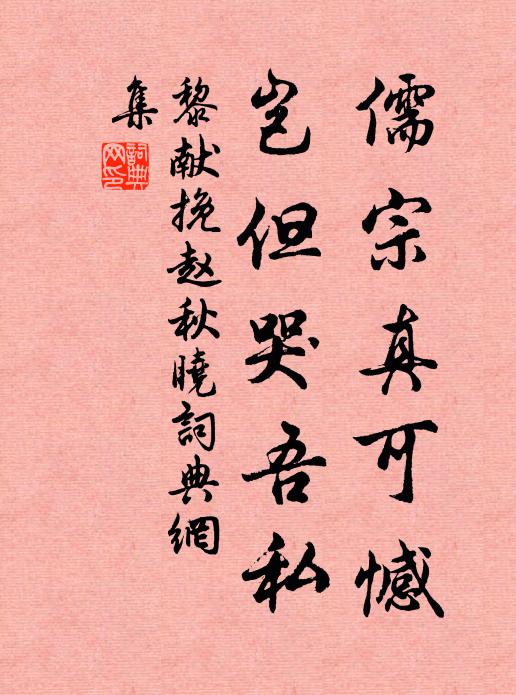 儒宗真可憾
岂但哭吾私
黎献挽赵秋曉詞典網
集
詞典
网印